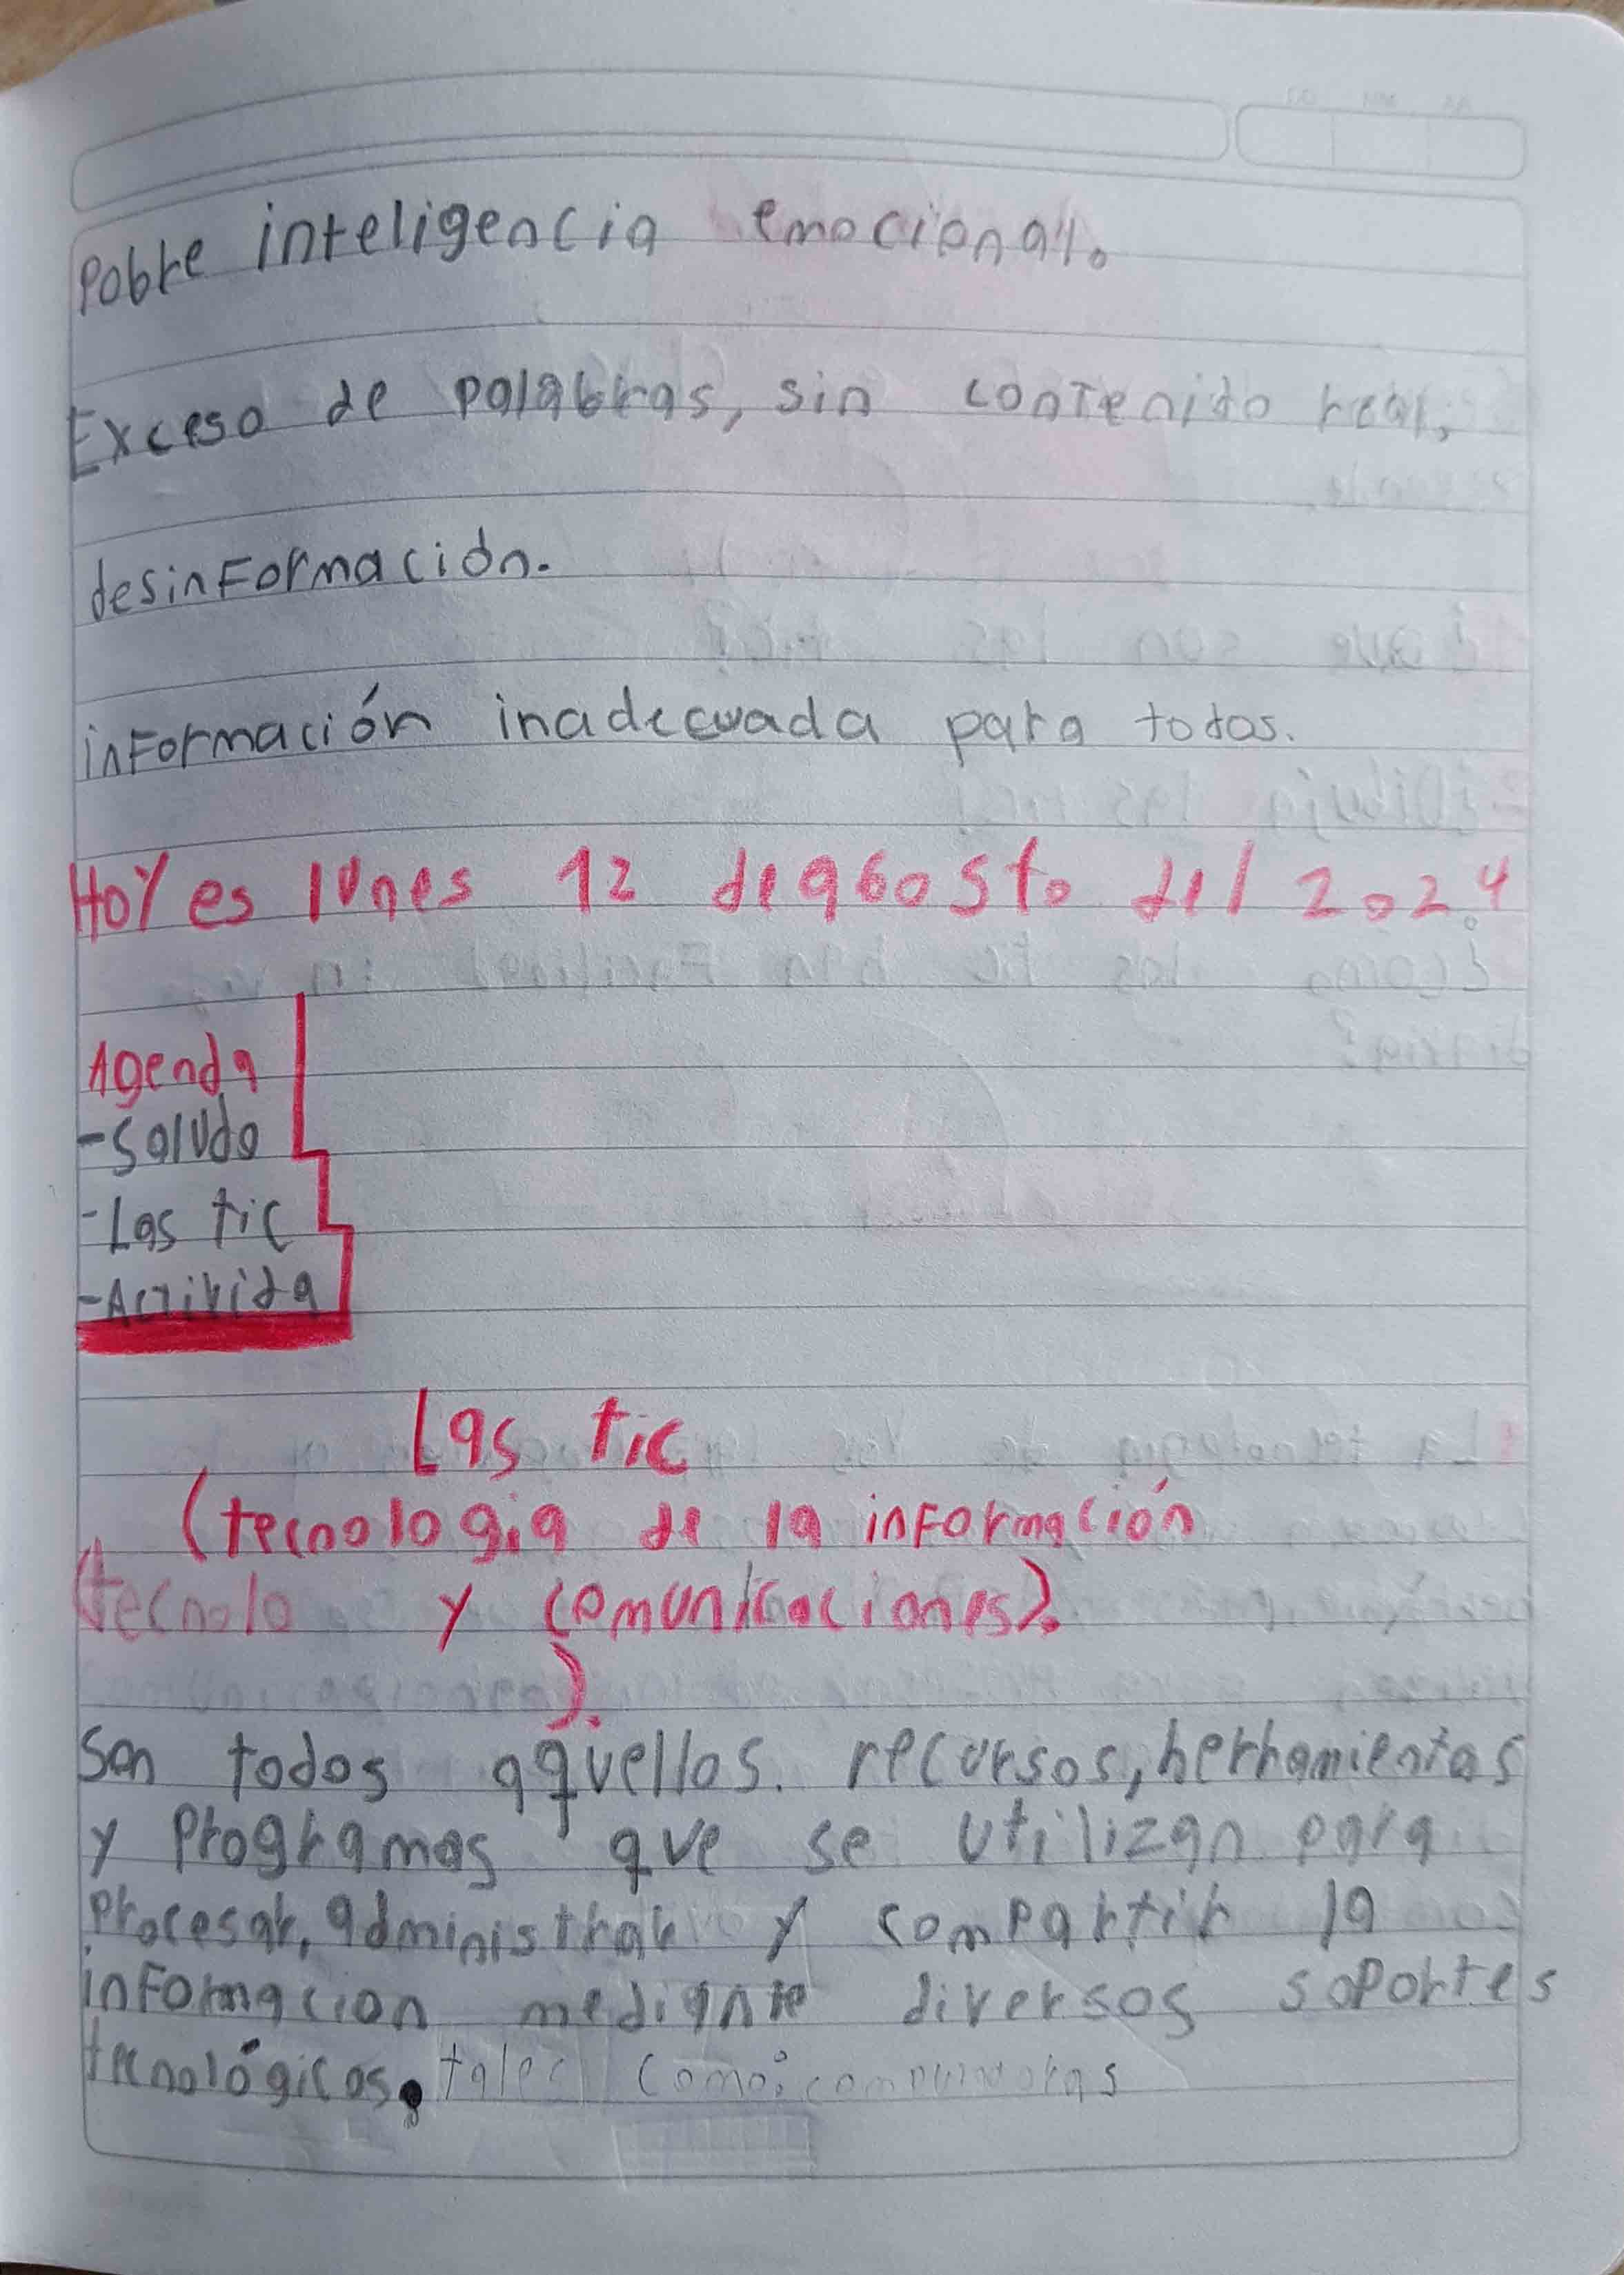 pobre inteligencia emocional.
Exceso de palabras, sin contenido real,
desinformación.
información inadecuada para todos.
Hoy es lunes 12 de agosto del 2.024
Agenda
-Saludo
-Las tic
-Activida
Las tic
(tecnologia de la información
(tecnolo y comunicaciones).
).
Son todos aquellos. recursos, herramientas
y programas que se utilizan para
procesar, administrar y compartir la
informacion mediante diversos soportes
tecnológicos, tales como: computadoras